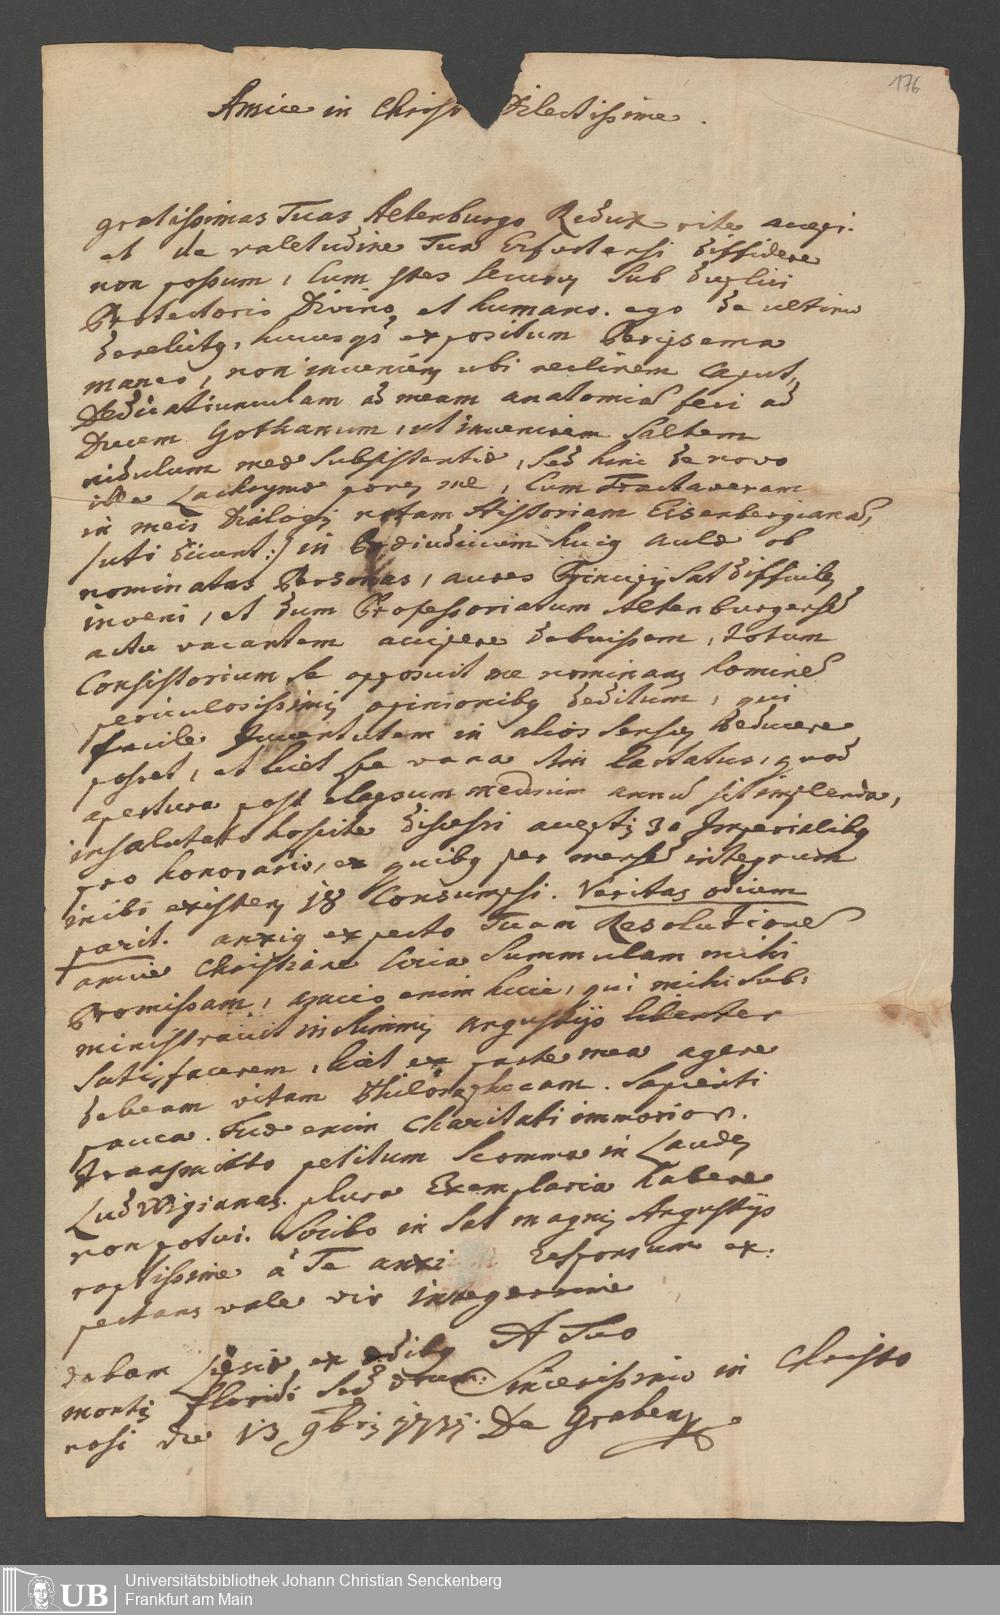 176
Amice in Christo Dilectissime.
gratissimas Tuas Altenburgo Redux rite accepi.
et de valetudine Tua Erfortensi diffidere
non possum, Cum stes securus sub duplici
Protectoris Divino et humano. ego de ultimo
derelictus, hucusque expositum Peripsema
maneo, non inveniens ubi reclinem Caput,
Dedicatiunculam ad meam anatomiam feci ad
Ducem Gothanum, ut invenirem saltem
nidulum meae subsistentiae, sed hinc de novo
illae Lachrymae porro me, Cum Tractaveram
in meis Dialogis notam Historiam Eisenbergianam,
/uti dicunt:/ in Praeiudicium hujus aulae ob
nominatas Personas, aures Principis sat difficiles
inveni, et dum Professoriatum Altenburgensem
actu vacantem accipere debuissem, totum
Consistorium se opposuit me nominans hominem
periculosissimis opinionibus deditum, qui
facile Juventutem in alios sensus deducere
posset, et licet spe vana sim lactatus, quod
apertura post elapsum medium annum sit implenda,
insalutato hospite discessi acceptis 30 Imperialibus
pro honorario, ex quibus per mensem integrum
inibi existens 18 Consumpsi. Veritas odium
parit. anxius expecto Tuam Resolutionem
amice Christiane circa summulam mihi
Promissam, amico enim huic, qui mihi sub:
ministravit in summis angustijs libenter
satisfacerem, licet ex parte mea agere
debeam vitam Philosophicam. Sapienti
pauca. Tuae enim Charitati immorior.
Transmitto petitum Scomma in Laudes
Ludwigianas. plura Exemplaria habere
non potui. Scribo in sat magnis Angustijs
raptissime à Te anxi responsum ex:
pectans vale vir integerrime
A Tuo
dabam ex aedibus
Sincerissimo in Christo
montis floridi sed
De Grabenz
rosi die 13 9bris
Universitätsbibliothek Johann Christian Senckenberg
Frankfurt am Main
UB